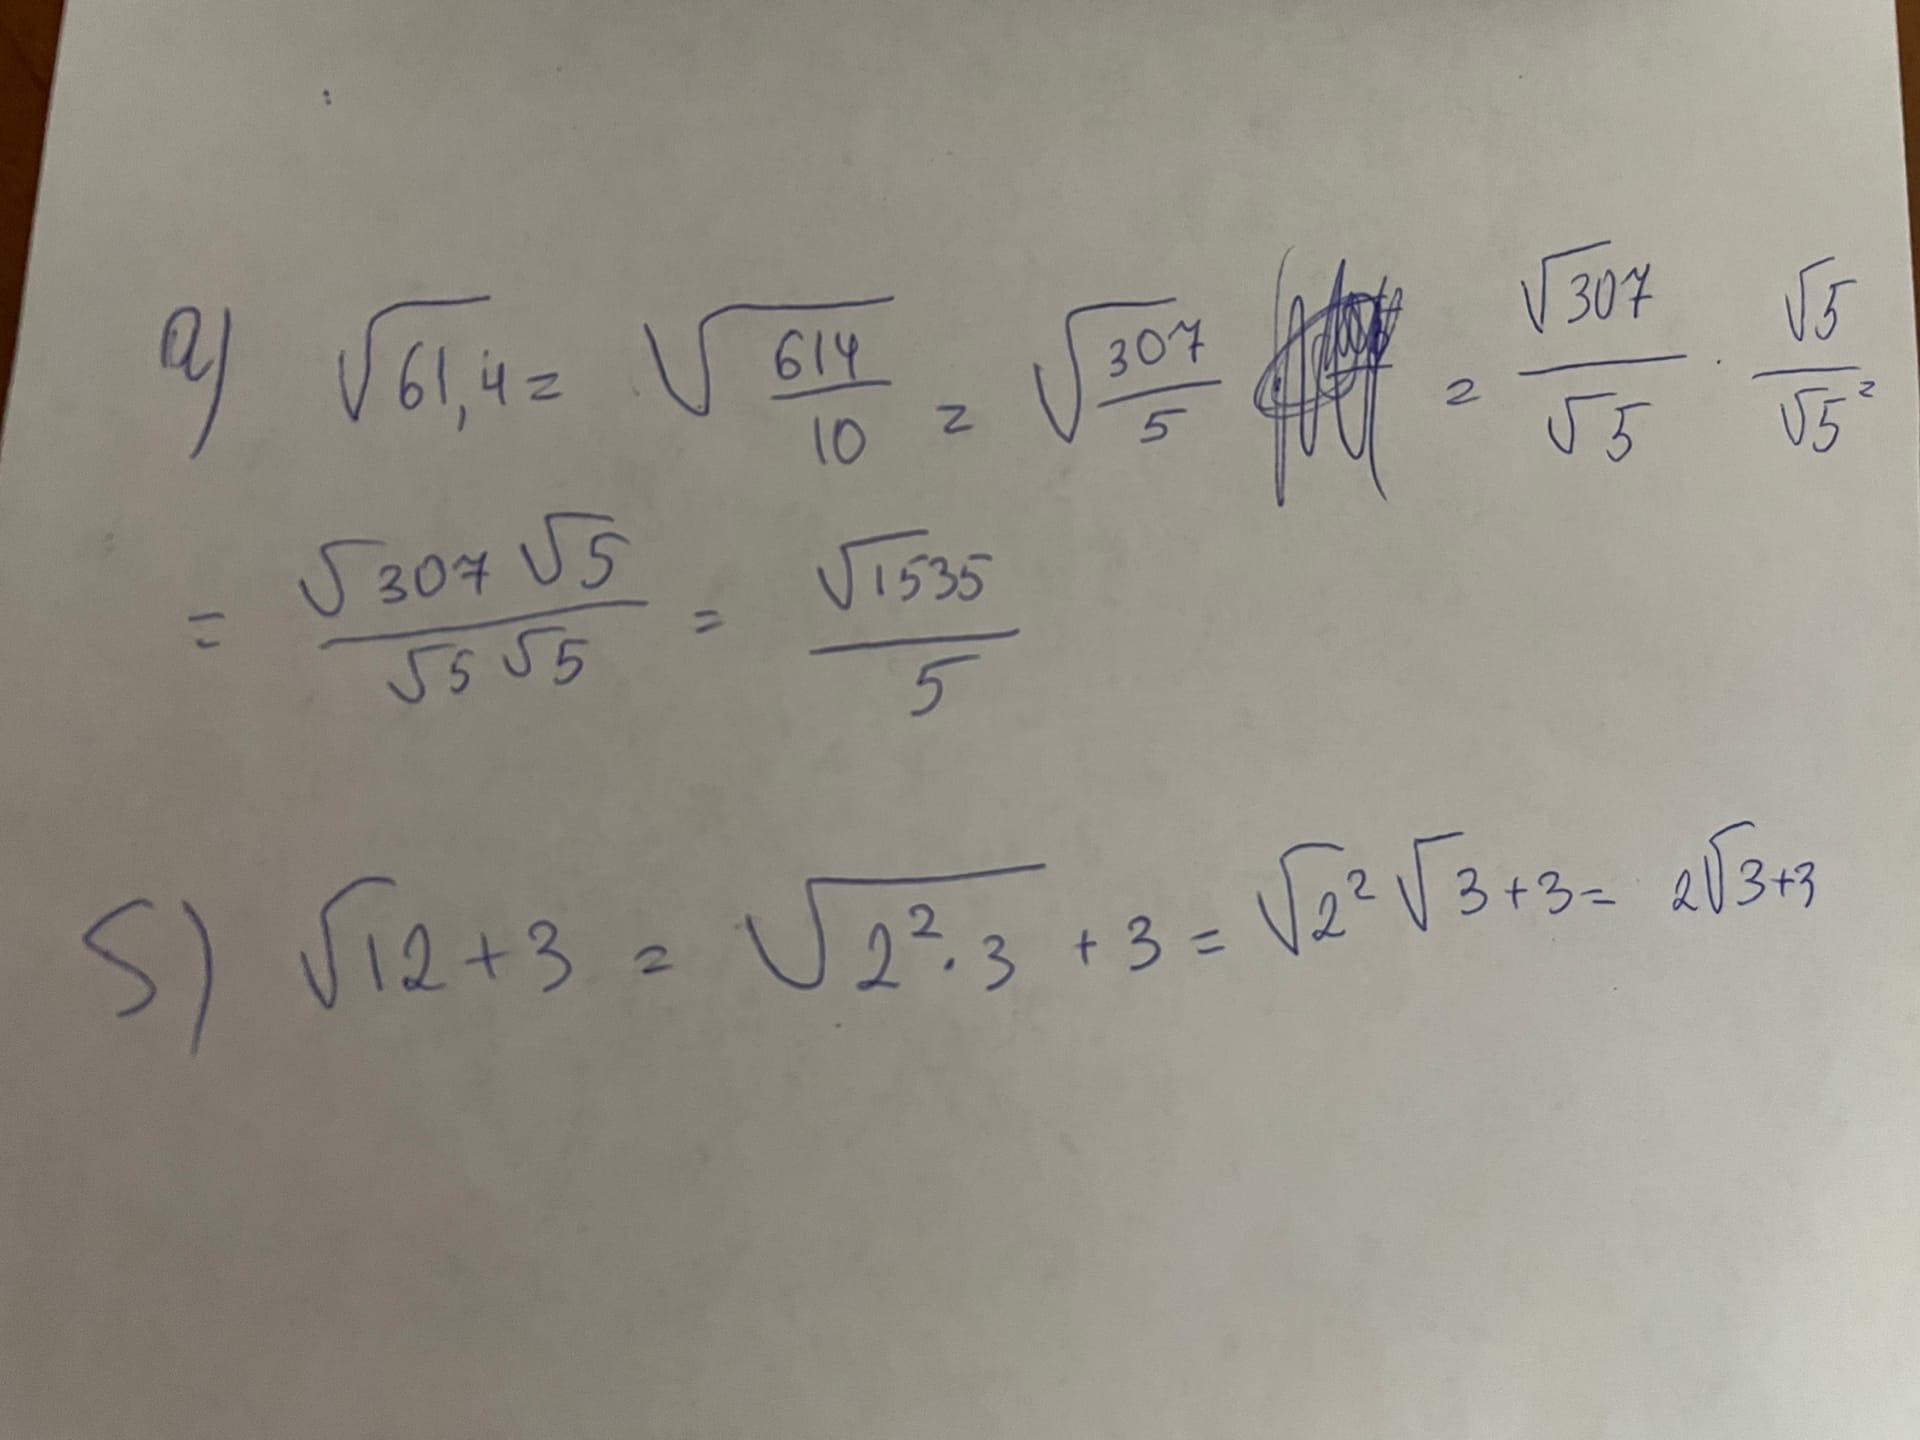 а) √61,4 = √(614/10) = √(307/5) = √307/√5 · √5/√5 =
= √307 √5 / √5 √5 = √1535 / 5
б) √12 + 3 = √(2² · 3) + 3 = √2² √3 + 3 = 2√3 + 3